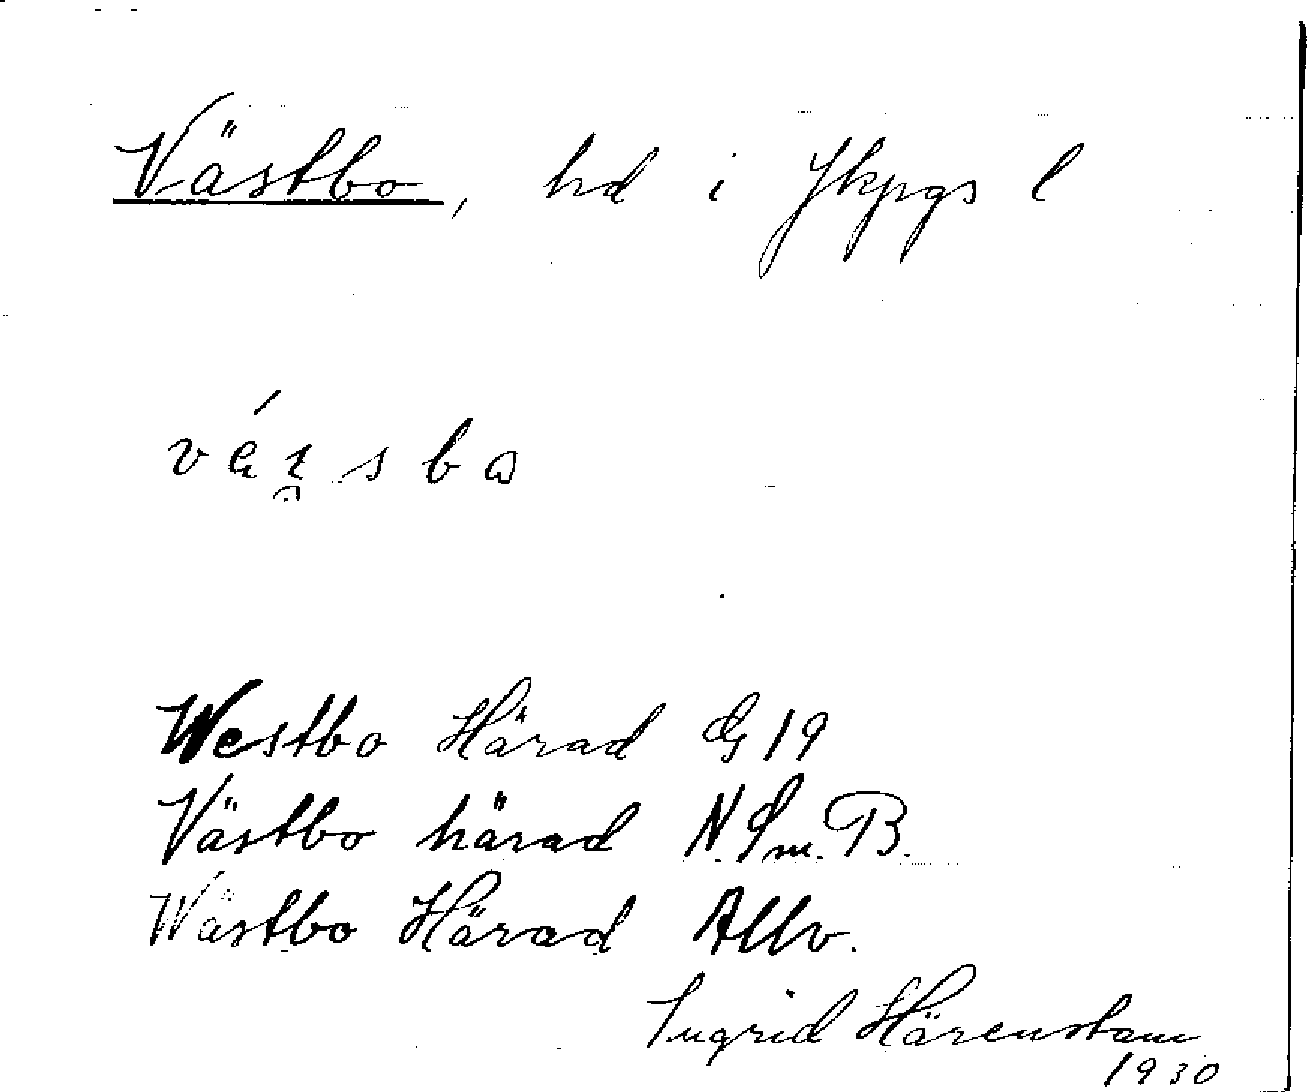 Västbo, hd i Jkpgs l
Westbo Härad G 19
Västbo härad N. Sm. B.
Wästbo Härad Allv.
Ingrid Härenstam
1930